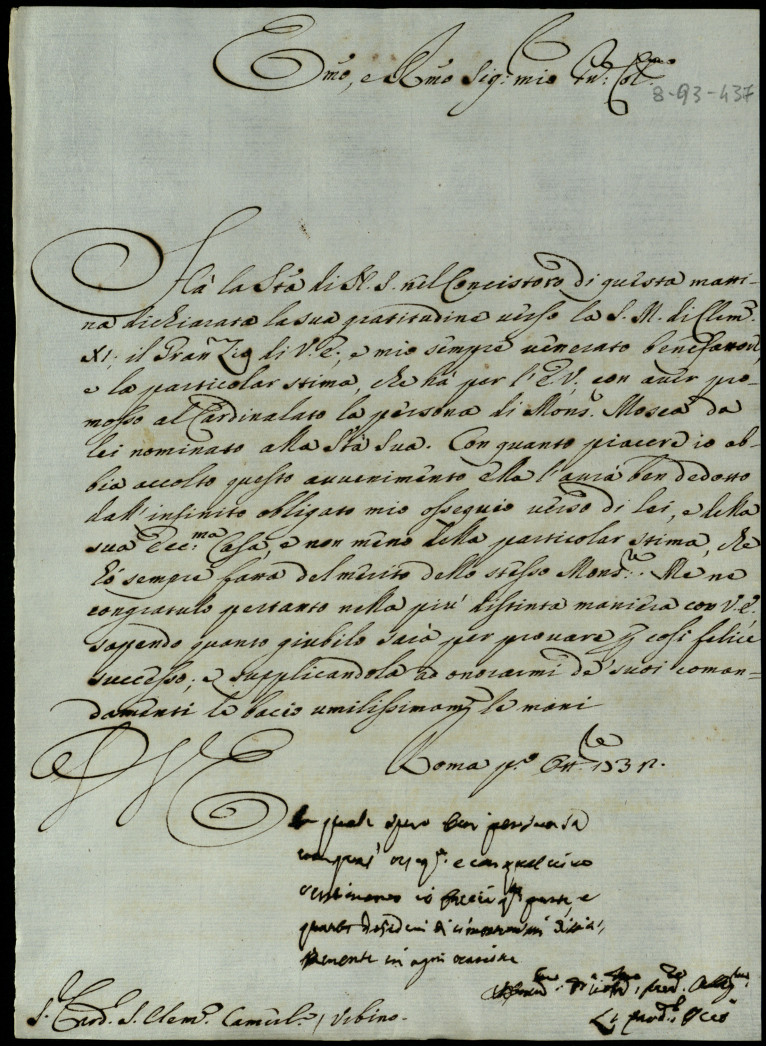 Emo, e Rmo Sig: mio
8-93-437
Hà la Stà di N. S. nel Concistoro di questa matti-
na dichiarata la sua gratitudine verso la S. M. di Clem.
XI; il Gran Zio di V. E., e mio sempre venerato benefattore,
e la particolar stima, che hà per l'E. V., con aver pro-
mosso al Cardinalato la persona di Mons.r Mosca da
lei nominato alla Stà Sua. Con quanto piacere io ab-
bia accolto questo avvenimento ella l'avrà ben dedotto
dall'infinito obligato mio ossequio verso di lei, e della
sua Ecc.ma Casa, e non meno della particolar stima, che
hò sempre fatta del merito dello stesso Mons.re. Me ne
congratulo pertanto nella più distinta maniera con V. E.
sapendo quanto giubilo sarà per provare p cosi felice
successo; e supplicandola ad onorarmi de' suoi coman=
damenti le bacio umilissimam.te le mani
V E
Roma p.o Ott.re
la quale spero ben persuasa
con e con quel
sentimento io faccia parte, e
quanto desideri di
in ogni occasione
S. Card. S. Clem.e Camerl. / Urbino.